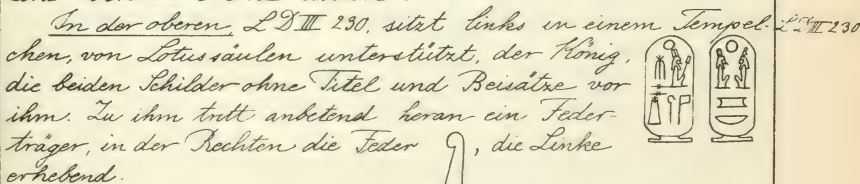 In der oberen, LD III 230, sitzt links in einem Tempel- LD III 230
chen, von Lotussäulen unterstützt, der König,
die beiden Schilder ohne Titel und Beisätze vor
ihm. Zu ihm tritt anbetend heran ein Feder-
träger, in der Rechten die Feder , die Linke
erhebend.